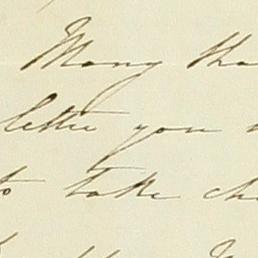 Many tha
letter you
to take ch